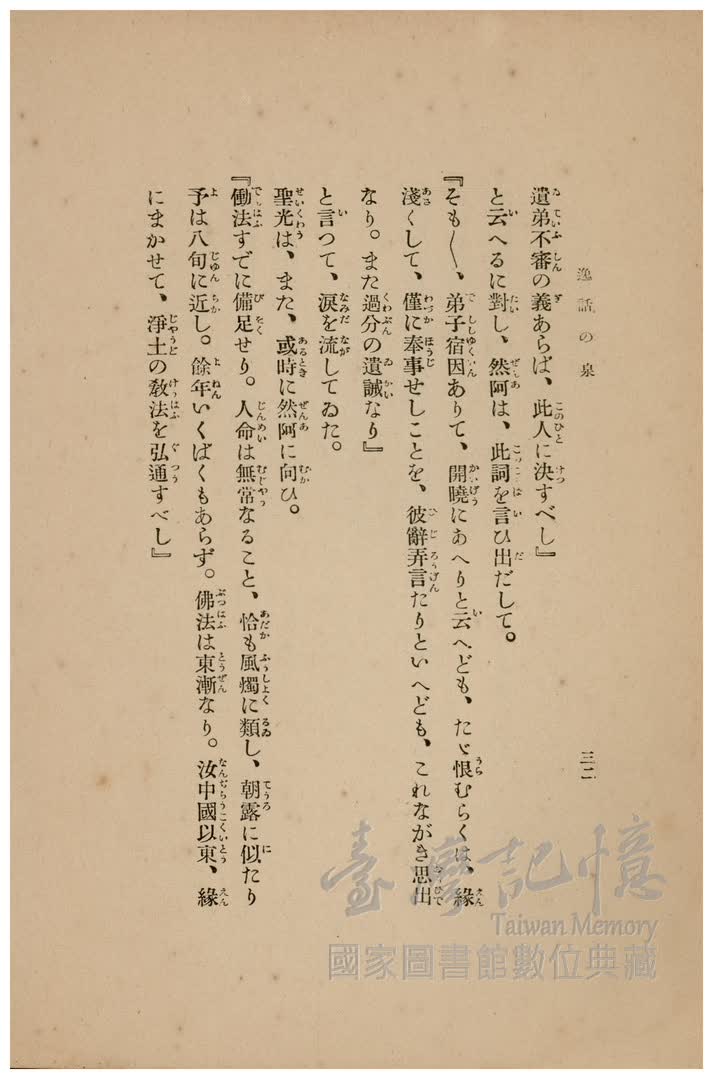 逸話の泉
三二
遺弟不審の義あらば、此人に決すべし』
と云へるに對し、然阿は、此詞を言ひ出だして。
『そも〳〵、弟子宿因ありて、開曉にあへりと云へども、たゞ恨むらくは、緣
淺くして、僅に奉事せしことを、彼辭弄言たりといへども、これながき思出
なり。また過分の遺誡なり』
と言つて、淚を流してゐた。
聖光は、また、或時に然阿に向ひ。
『働法すでに備足せり。人命は無常なること、恰も風燭に類し、朝露に似たり
予は八旬に近し。餘年いくばくもあらず。佛法は東漸なり。汝中國以東、緣
にまかせて、淨土の敎法を弘通すべし』
臺灣記憶
Taiwan Memory
國家圖書館數位典藏